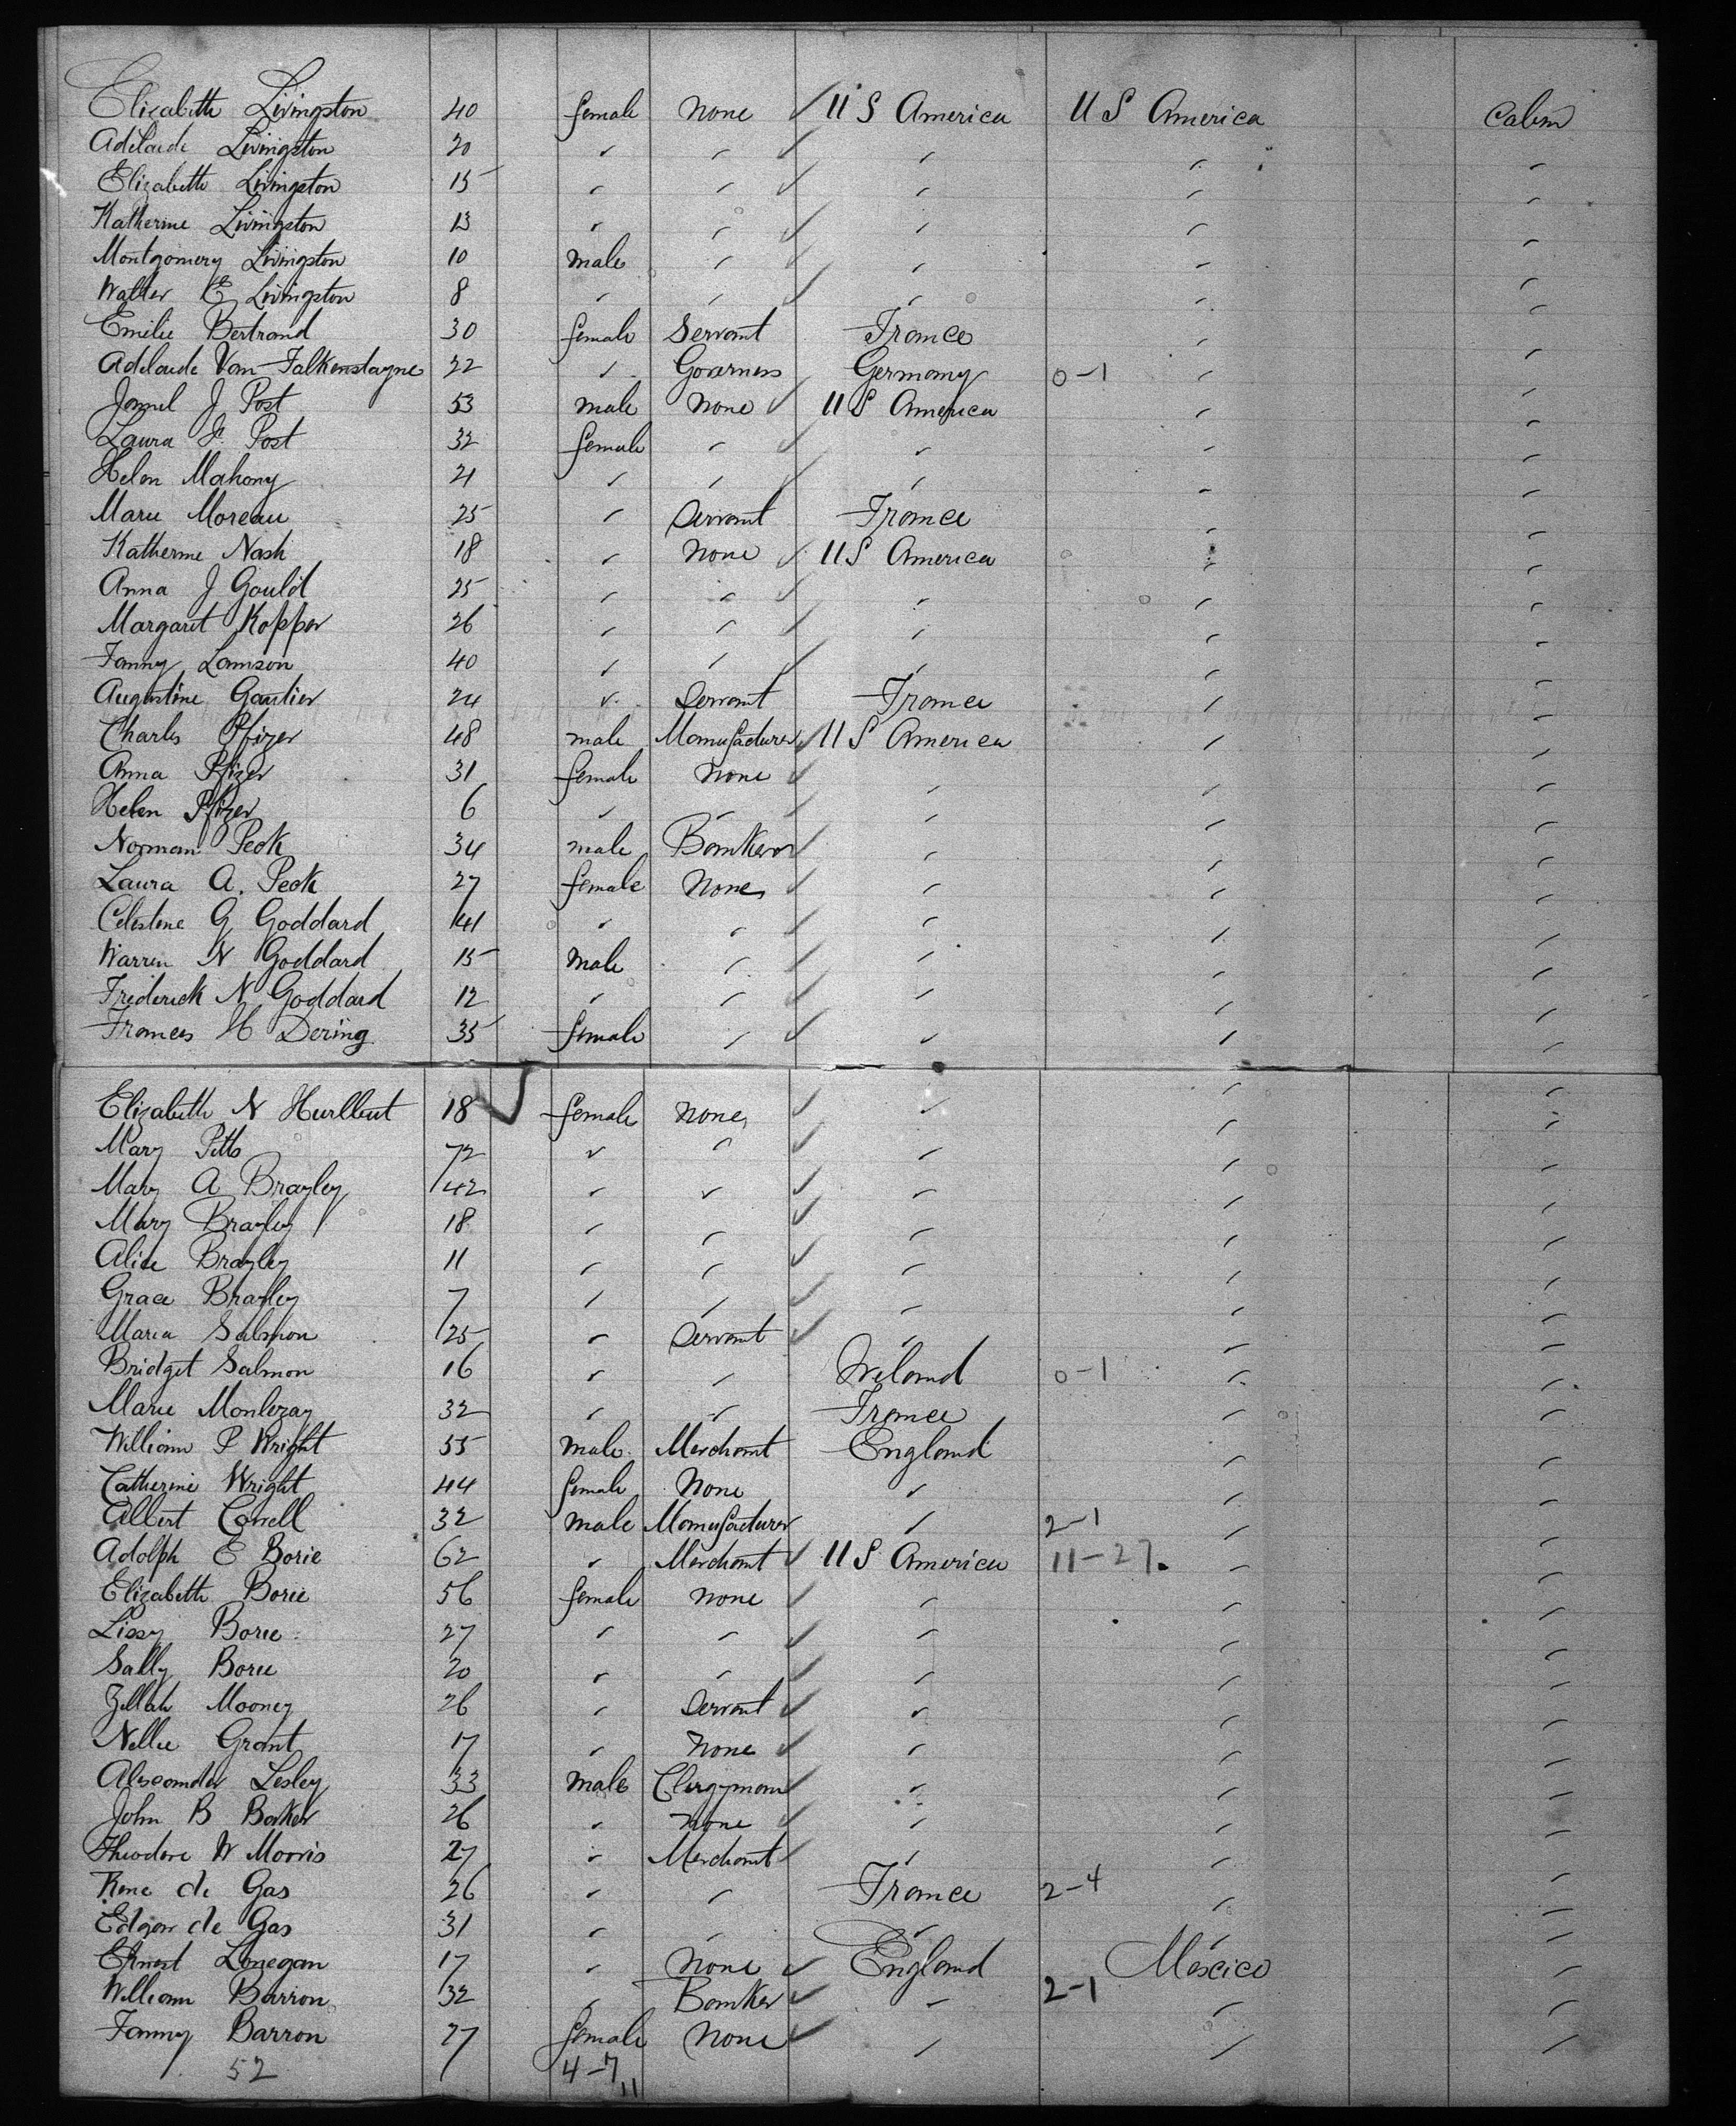 Elizabeth Livingston 40 female none ✓ U S America U S America Cabin
Adelaide Livingston 20 " " ✓ " " "
Elizabeth Livingston 15 " " ✓ " " "
Katherine Livingston 13 " " ✓ " " "
Montgomery Livingston 10 male " ✓ " " "
Walter E Livingston 8 " " ✓ " " "
Emilie Bertrand 30 female Servant France " "
Adelaide Van Falkenstayne 22 " Governess Germany 0-1 " "
J Post 53 male none ✓ U S America " "
Laura F. Post 32 female " ✓ " " "
Helen Mahony 21 " " ✓ " " "
Marie Moreau 25 " Servant France " "
Katherine Nash 18 " none ✓ U S America " "
Anna J Gould 25 " " ✓ " " "
Margaret Kopper 26 " " ✓ " " "
Fanny Lamson 40 " " ✓ " " "
Augustine Gautier 24 " Servant France " "
Charles Pfizer 48 male Manufacturer ✓ U S America " "
Anna Pfizer 31 female none ✓ " " "
Helen Pfizer 6 " " ✓ " " "
Norman Peck 34 male Banker ✓ " " "
Laura A. Peck 27 female none ✓ " " "
Celestine G Goddard 41 " " ✓ " " "
Warren N Goddard 15 male " ✓ " " "
Frederick N Goddard 12 " " ✓ " " "
Frances H Dering 35 female " ✓ " " "
Elizabeth N Hurlbut 18 female none ✓ " " "
Mary Pitts 72 " " ✓ " " "
Mary A Brayley 42 " " ✓ " " "
Mary Brayley 18 " " ✓ " " "
Alice Brayley 11 " " ✓ " " "
Grace Brayley 7 " " ✓ " " "
Maria Salmon 25 " Servant ✓ " " "
Bridget Salmon 16 " " Ireland 0-1 " "
Marie Monlezay 32 " " France " "
William P Wright 55 male Merchant England " "
Catherine Wright 44 female None " " "
Albert 32 male Manufacturer " 2-1 " "
Adolph E Borie 62 " Merchant ✓ U S America 11-27 " "
Elizabeth Borie 56 female none ✓ " " "
Lissy Borie 27 " " ✓ " " "
Sally Borie 20 " " ✓ " " "
Zillah Mooney 26 " Servant ✓ " " "
Nellie Grant 17 " none ✓ " " "
Alexander Lesley 33 male Clergyman ✓ " " "
John B Baker 26 " none ✓ " " "
Theodore W Morris 27 " Merchant ✓ " " "
Rene de Gas 26 " " France 2-4 " "
Edgar de Gas 31 " " " " "
Ernest Lonegan 17 " none ✓ England Mexico "
William Barron 32 " Banker ✓ " 2-1 " "
Fanny Barron 27 female none ✓ " " "
52 4-7 11